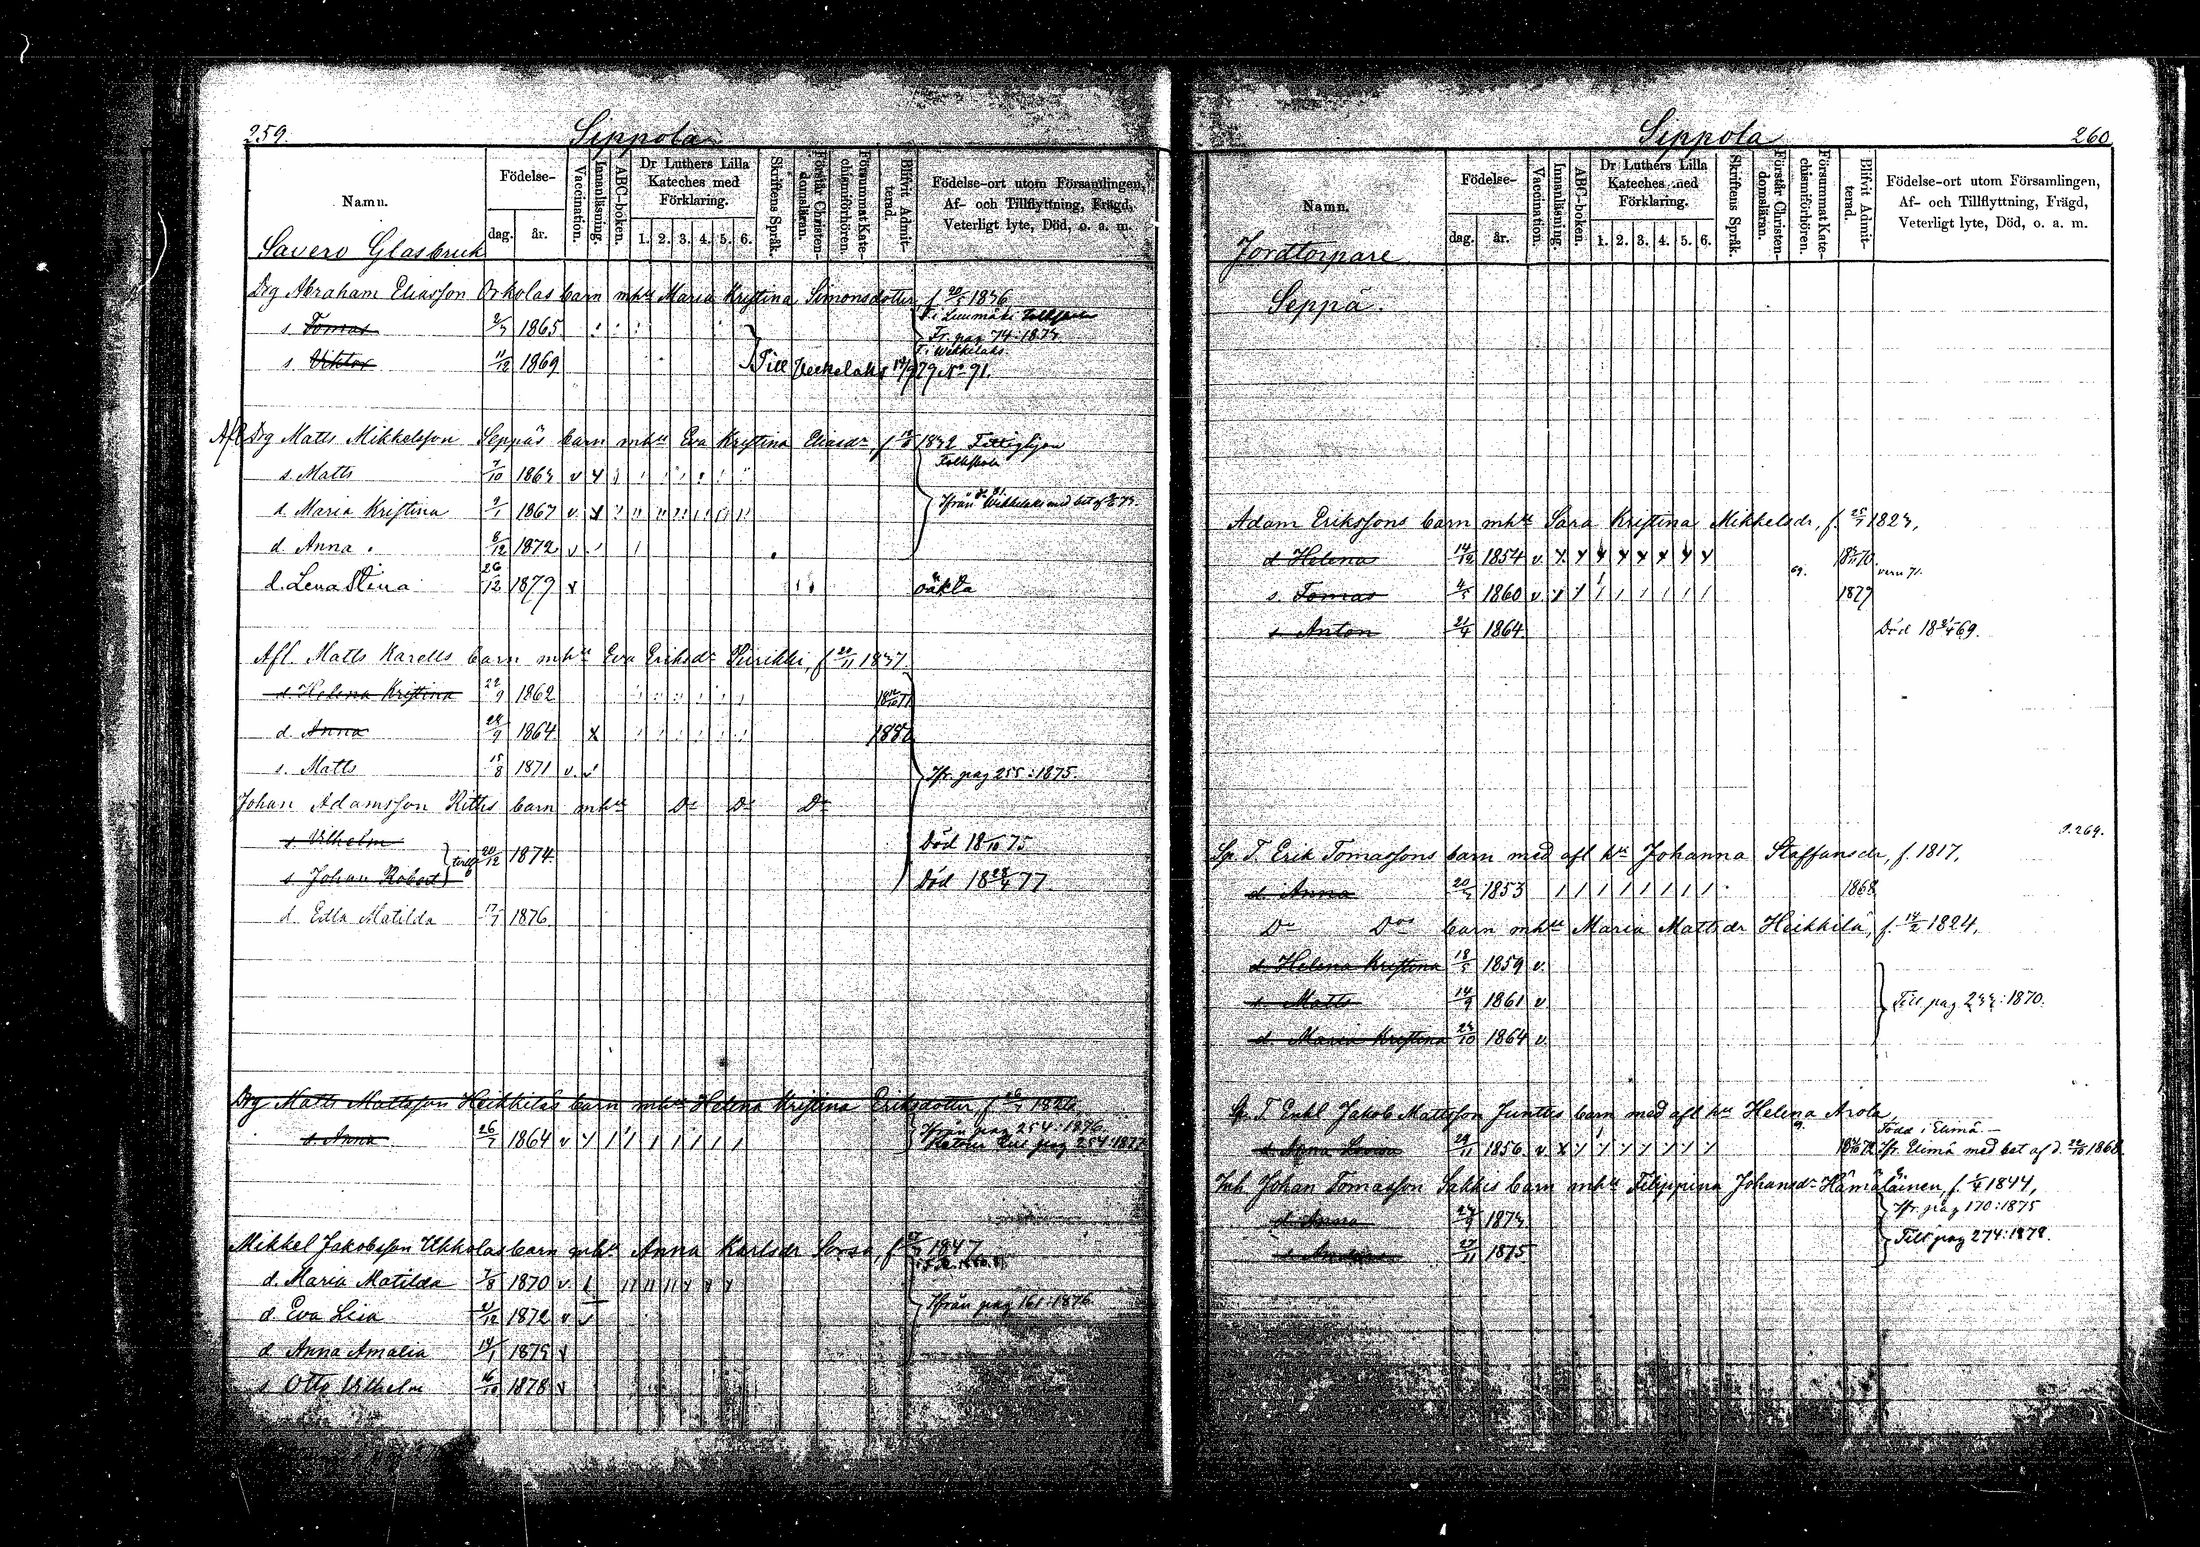 259.
Seppola
Namn.
Födelse-
dag.
år.
Vaccination.
Innanläsning.
ABC-boken.
Dr Luthers Lilla Kateches med Förklaring.
1. 2. 3. 4. 5. 6.
Skriftens Språk.
Förstår Christendomsläran.
Försummat Katechismiförhören.
Blifvit Admitterad.
Födelse-ort utom Församlingen,
Af- och Tillflyttning, Frägd,
Veterligt lyte, Död, o. a. m.
Savero Glasbruk
Drg Abraham Eliasson Orkolas barn mhu Maria Kristina Simonsdotter, f 20/5 1836
s. Tomas 2/7 1865
Fr. pag 74:1873
s. Viktor 11/12 1869
Till Veckelaks 17/9 79 No 91.
Afl Drg Matts Mikkelsson Seppäs barn mhu Eva Kristina Eliasdr, f 1832
s. Matts 7/10 1863 v
Folkskola
d. Maria Kristina 9/1 1867 v
d. Anna 8/12 1872 v
d. Lena Stina 26/12 1879
oäkta
Afl. Matts Karells barn mhu Eva Eriksdr f 20/11 1837
d. Helena Kristina 22/9 1862
d. Anna 28/9 1864 1882
s. Matts 15/8 1871 v.
Ifr. pag 255:1875.
Johan Adamsson barn mhu Do Do Do
s. Vilhelm
20/12 1874
Död 18 /10 75
s. Johan Robert
Död 18 28/4 77
d. Edla Matilda 17/7 1876
Drg Matts Mattsson Heikkiläs barn mhu Helena Kristina Eriksdotter, f 1826
d. Anna 26/7 1864 v
Ifrån pag 254:1876.
Retour till pag 254:1877
Mikkel Jakobsson Ukkolas barn mhu Anna Karlsdr Sorsa, f 1847
d. Maria Matilda 7/8 1870 v
d. Eva Lisa 2/12 1872 v
Ifrån pag 161:1876
d. Anna Amalia 14/1 1875 v
s. Otto Vilhelm 16/10 1878 v
Seppola
260
Namn.
Födelse-
dag.
år.
Vaccination.
Innanläsning.
ABC-boken.
Dr Luthers Lilla Kateches med Förklaring.
1. 2. 3. 4. 5. 6.
Skriftens Språk.
Förstår Christendomsläran.
Försummat Katechismiförhören.
Blifvit Admitterad.
Födelse-ort utom Församlingen,
Af- och Tillflyttning, Frägd,
Veterligt lyte, Död, o. a. m.
Jordtorpare
Seppä.
Adam Erikssons barn mhu Sara Kristina Mikkelsdr, f. 25/7 1823,
d Helena 14/12 1854 v.
69.
s. Tomas 4/5 1860 v. 1879
s Anton 21/4 1864
Död 18 21/4 69.
P. 269.
Sp. T. Erik Tomassons barn med afl hu Johanna Staffansdr, f. 1817,
d. Anna 20/5 1853 1868
Do Dos barn mhu Maria Mattsdr Heikkilä, f. 14/2 1824,
d. Helena Kristina 18/5 1859 v.
s. Matts 14/9 1861 v
Till pag 233:1870.
d Maria Kristina 23/10 1864 v.
Sp. T. Enkl Jakob Mattsson Junttis barn med afl hu Helena Arola,
Född i Elimä
d. Anna Lovisa 29/11 1856 v
Ifr. Elimä med bet af d. 22/10 1868
Inh Johan Tomasson Sakkis barn mhu Filippina Johansdr Hämäläinen, f 1/4 1844,
d. Anna 24/9 1873
Ifr. pag 170:1875
s. Andreas 27/11 1875
Till pag 274:1878.